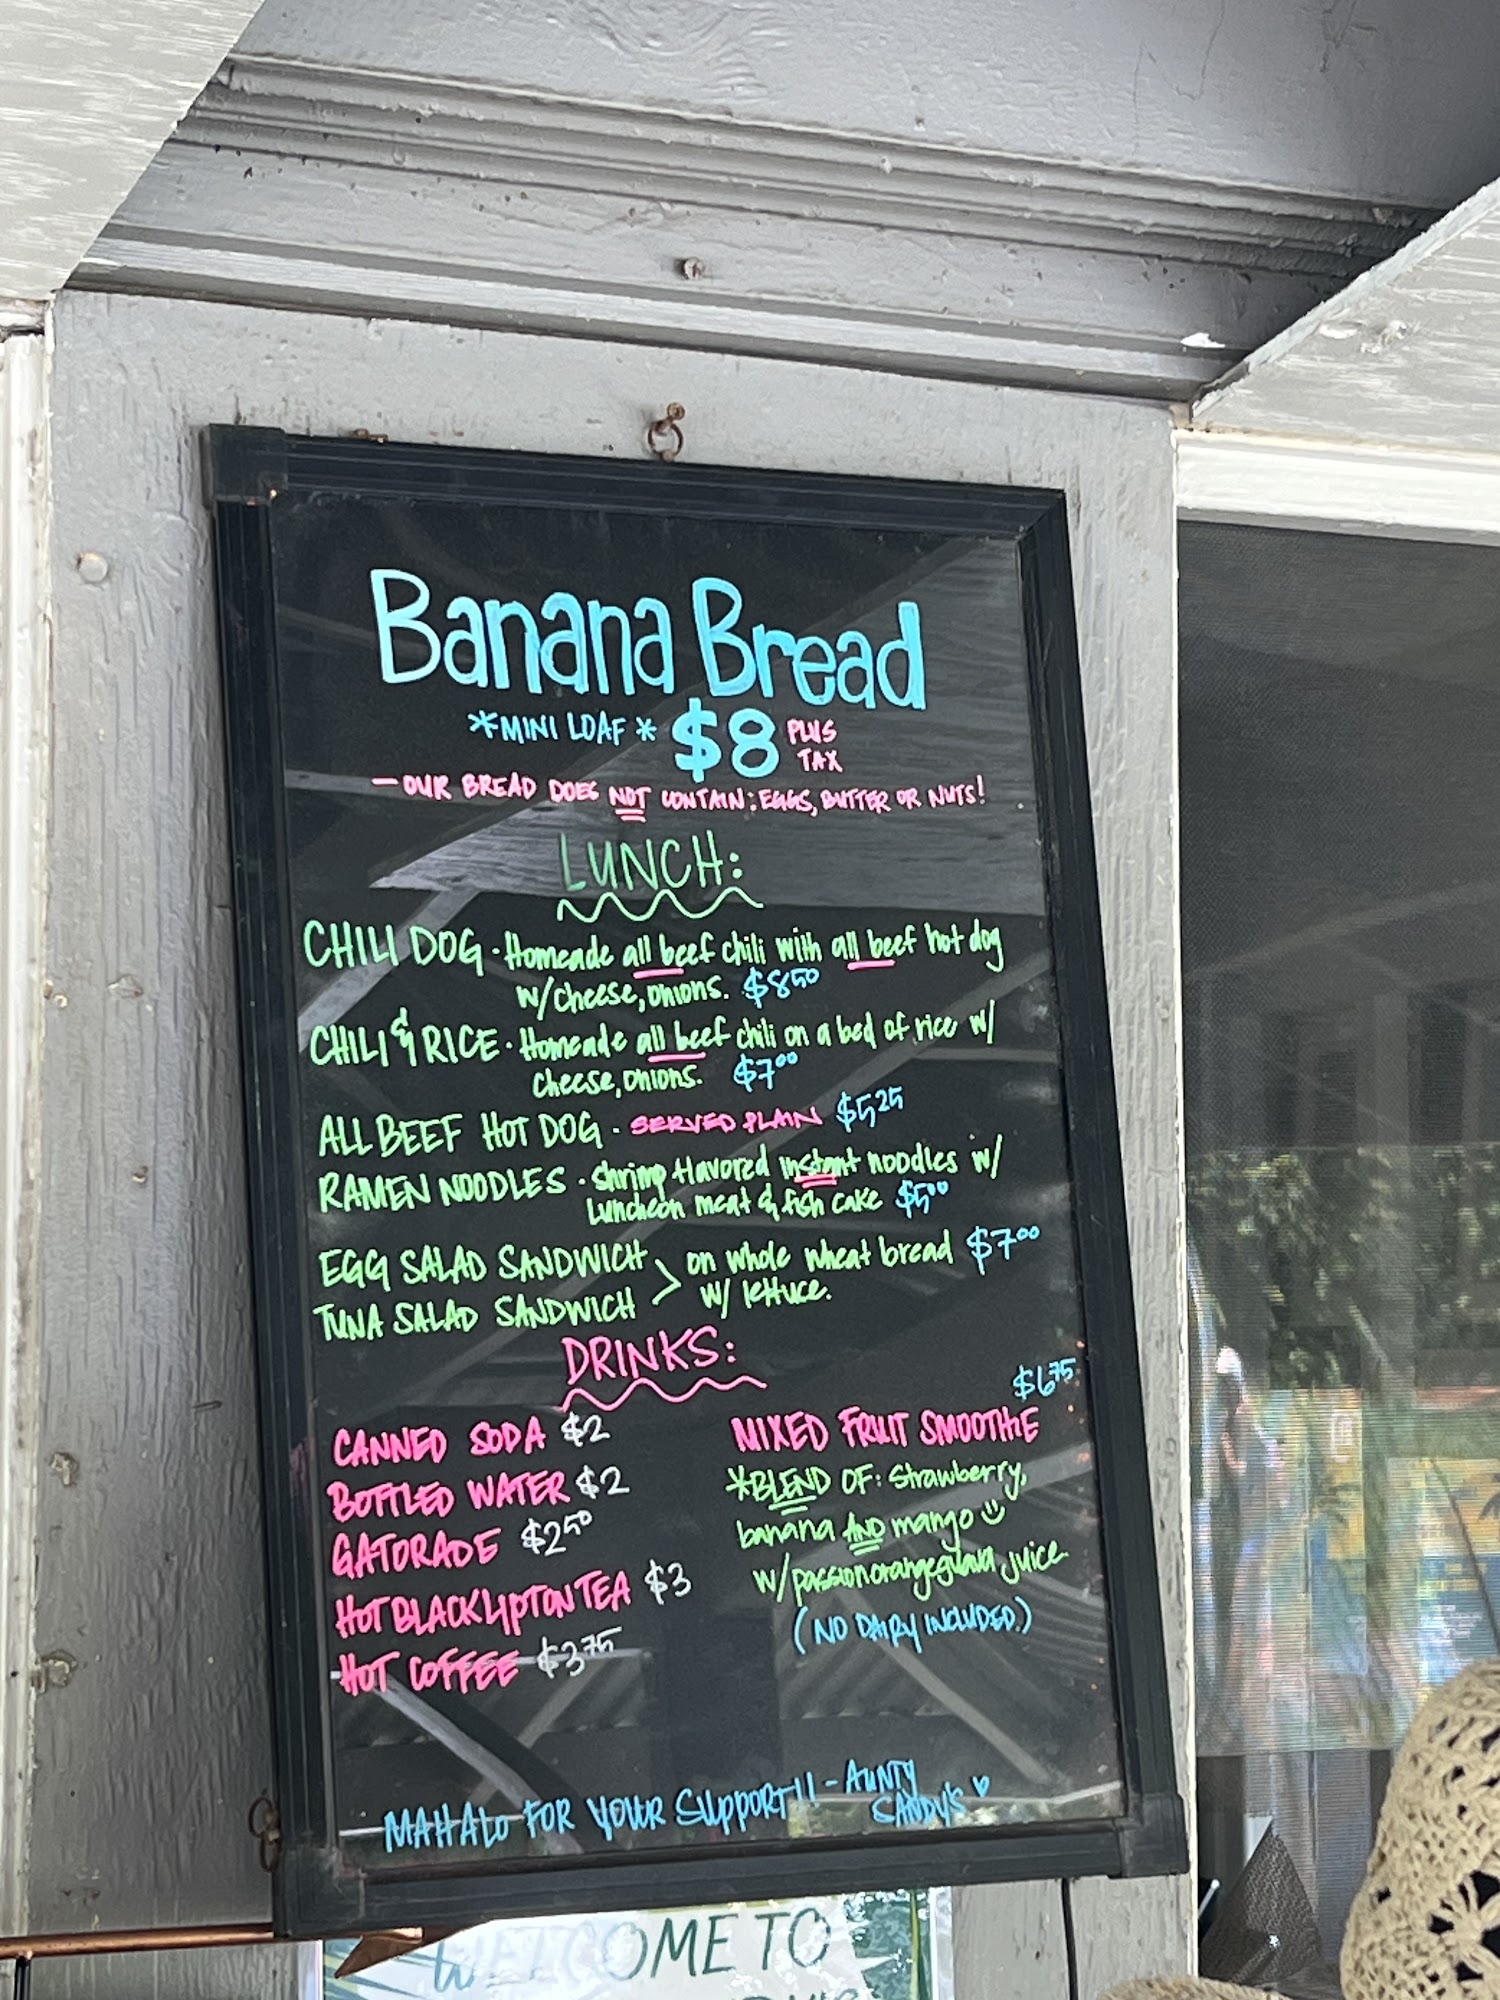 Banana Bread
*MINI LOAF* $8 PLUS TAX
- OUR BREAD DOES NOT CONTAIN: EGGS, BUTTER OR NUTS!
LUNCH:
CHILI DOG - Homeade all beef chili with all beef hot dog
w/cheese, onions. $8.50
CHILI & RICE - Homeade all beef chili on a bed of rice w/
cheese, onions. $7.00
ALL BEEF HOT DOG - SERVED PLAIN $5.25
RAMEN NOODLES - Shrimp flavored instant noodles w/
Luncheon meat & fish cake $5.00
EGG SALAD SANDWICH > on whole wheat bread $7.00
TUNA SALAD SANDWICH w/ lettuce.
DRINKS:
CANNED SODA $2
BOTTLED WATER $2
GATORADE $2.50
HOT BLACK LIPTON TEA $3
HOT COFFEE $3.75
$6.75
MIXED FRUIT SMOOTHIE
*BLEND OF: Strawberry,
banana AND mango
w/passionorangeguava juice
(NO DAIRY INCLUDED.)
MAHALO FOR YOUR SUPPORT!! - AUNTY
SANDY'S
WELCOME TO